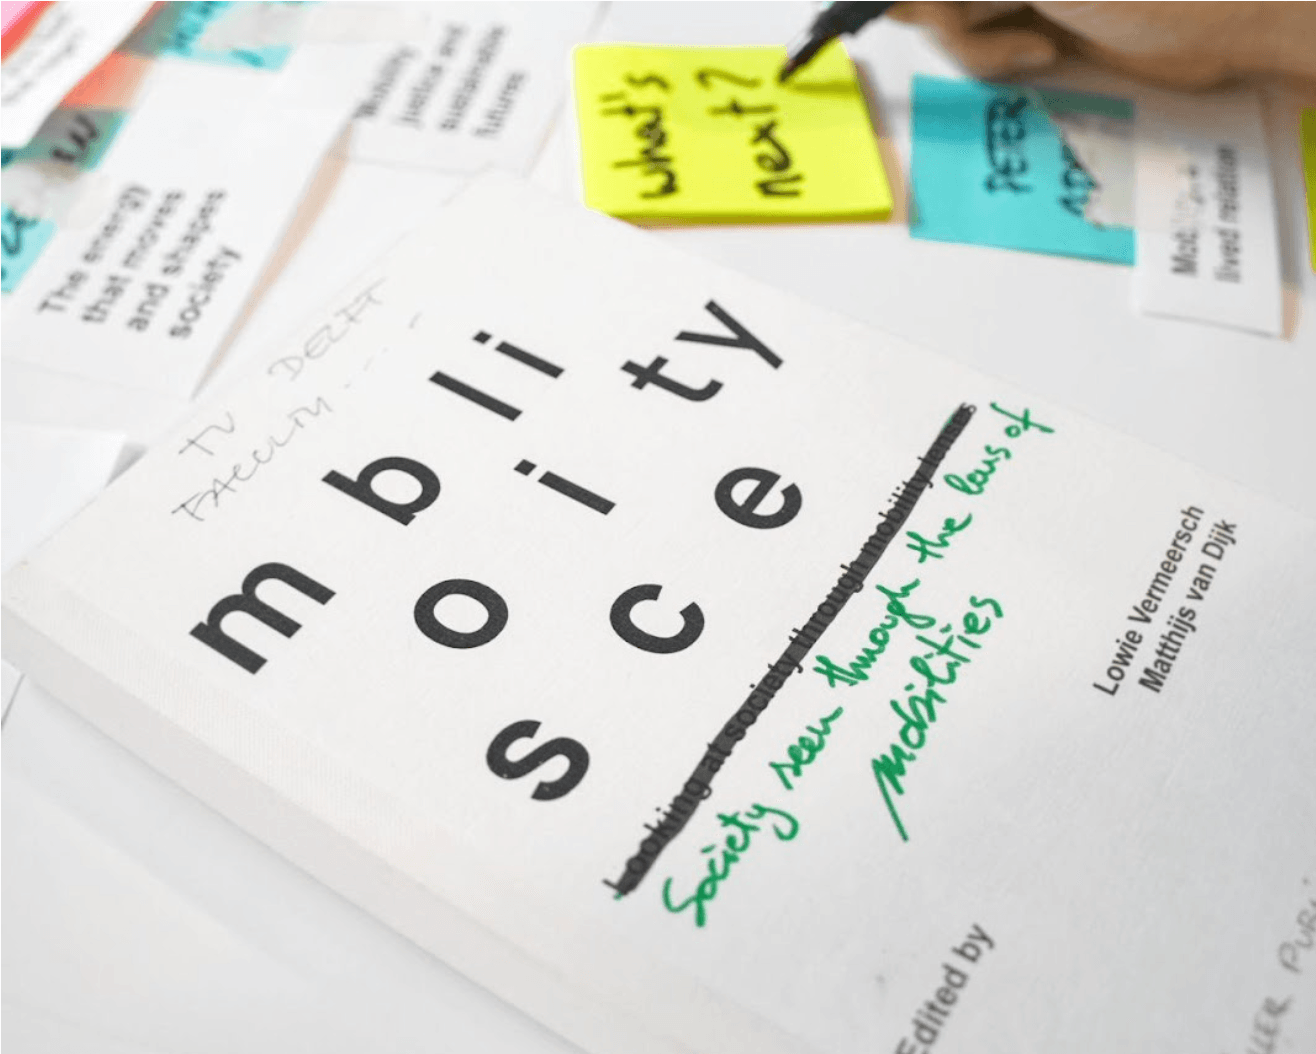 The energy
that moves
and shapes
society
Mobility
justice and
sustainable
futures
what's
next?
PETER
lived relation
TU DELFT
FACULTY...
m b li
o i ty
s c e
Looking at society through mobility lenses
Society seen through the lens of
mobilities
Lowie Vermeersch
Matthijs van Dijk
Edited by